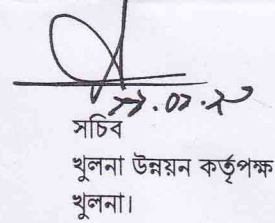 সচিব
খুলনা উন্নয়ন কর্তৃপক্ষ
খুলনা।